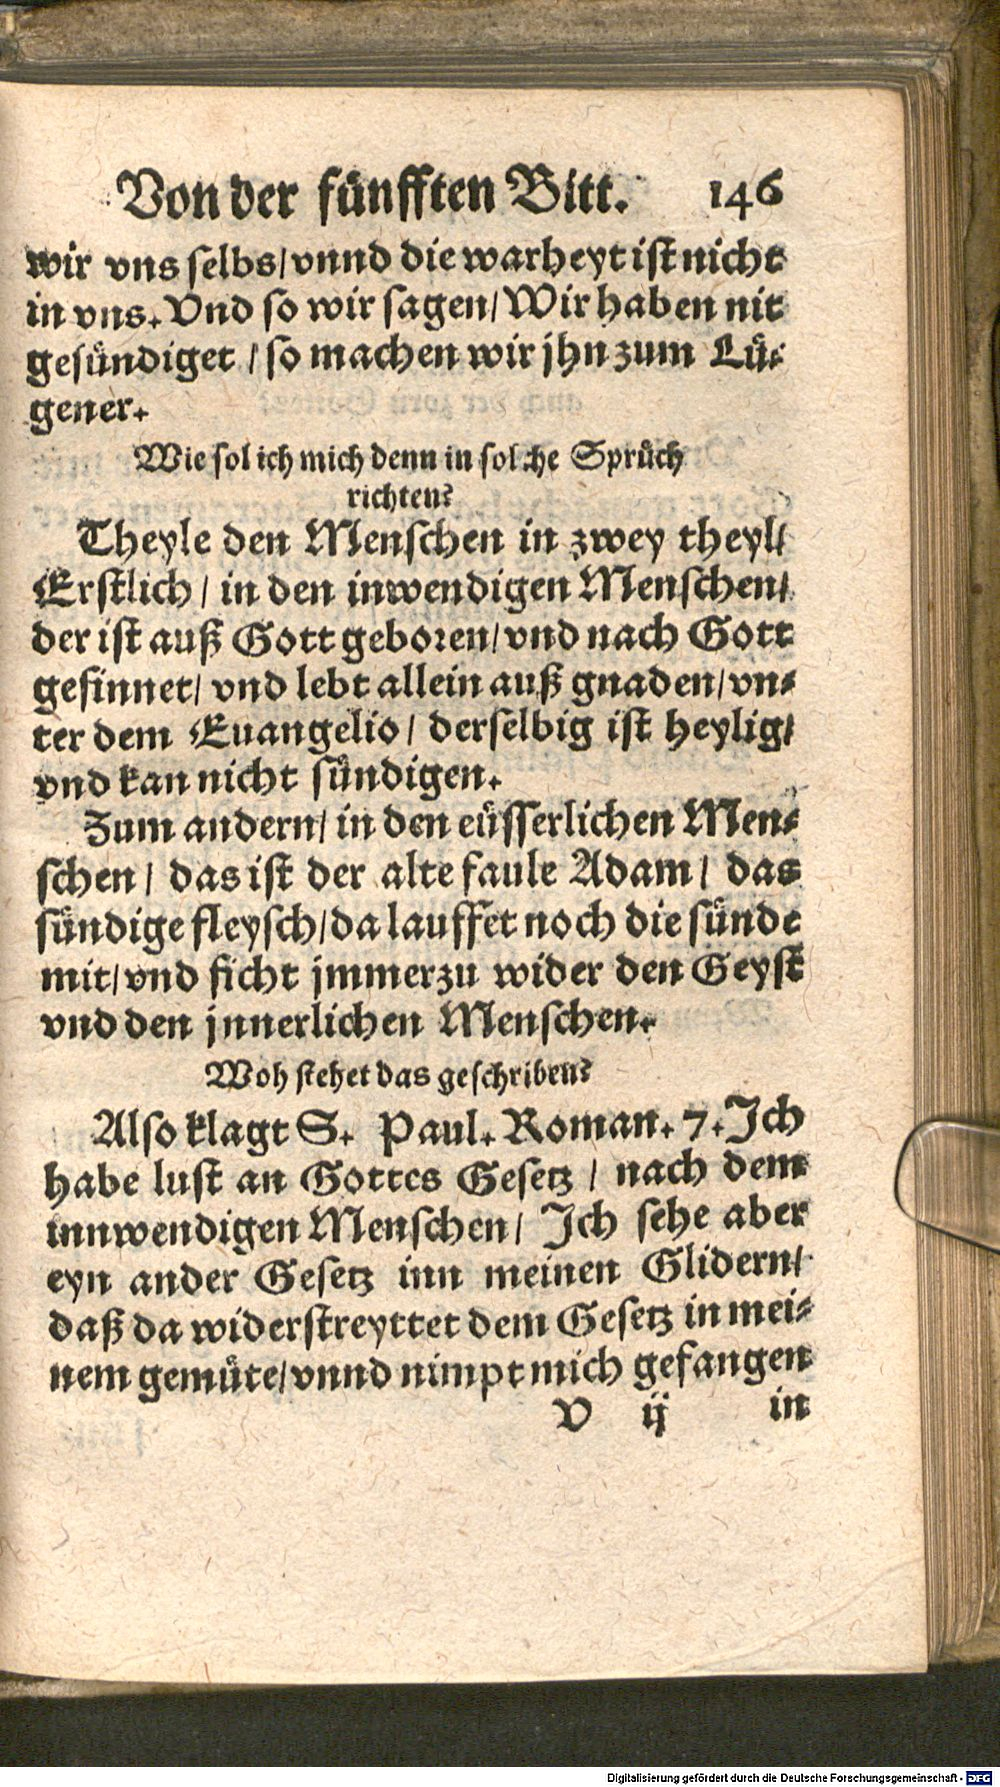 Von der fünfften Bitt. 146
wir vns selbs/vnnd die warheyt ist nicht
in vns. Vnd so wir sagen/Wir haben nit
gesündiget / so machen wir jhn zum Lü-
gener.
Wie sol ich mich denn in solche Sprüch
richten?
Theyle den Menschen in zwey theyl/
Erstlich / in den inwendigen Menschen/
der ist auß Gott geboren/vnd nach Gott
gesinnet/ vnd lebt allein auß gnaden/vn-
ter dem Euangelio / derselbig ist heylig/
vnd kan nicht sündigen.
Zum andern/ in den eüsserlichen Men-
schen / das ist der alte faule Adam / das
sündige fleysch/da lauffet noch die sünde
mit/vnd ficht jmmerzu wider den Geyst
vnd den jnnerlichen Menschen.
Woh stehet das geschriben?
Also klagt S. Paul. Roman. 7. Ich
habe lust an Gottes Gesetz / nach dem
innwendigen Menschen/ Ich sehe aber
eyn ander Gesetz inn meinen Glidern/
daß da widerstreyttet dem Gesetz in mei-
nem gemüte/vnnd nimpt mich gefangen
V ij in
Digitalisierung gefördert durch die Deutsche Forschungsgemeinschaft - DFG